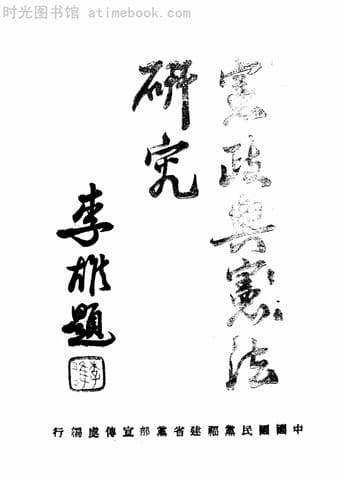 时光图书馆 - atimebook.com
憲政與憲法
研究
李雄題
中國國民黨福建省黨部宣傳處編行